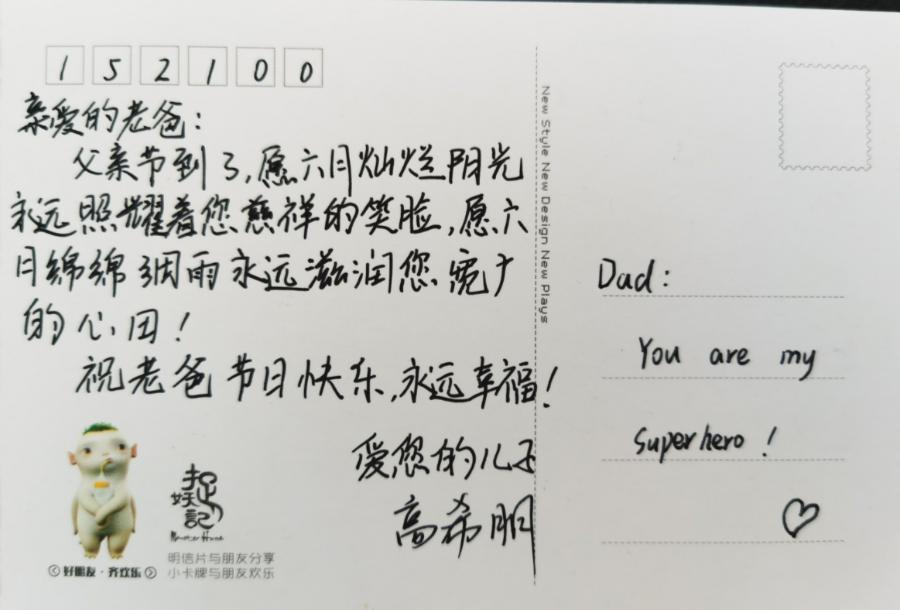 152100
亲爱的老爸:
父亲节到了,愿六月灿烂阳光
永远照耀着您慈祥的笑脸,愿六
月绵绵细雨永远滋润您宽广
的心田!
祝老爸节日快乐,永远幸福!
爱您的儿子
高希朋
捉妖記
Monster Hunt
好朋友·齐欢乐
明信片与朋友分享
小卡牌与朋友欢乐
New Style New Design New Plays
Dad:
You are my
superhero!